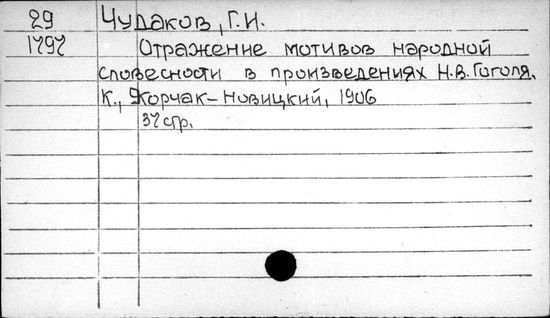 29 Чудаков, Г.И.
1797 Отражение мотивов народной
словесности в произведениях Н.В. Гоголя.
К., Корчак-Новицкий, 1906
37 стр.